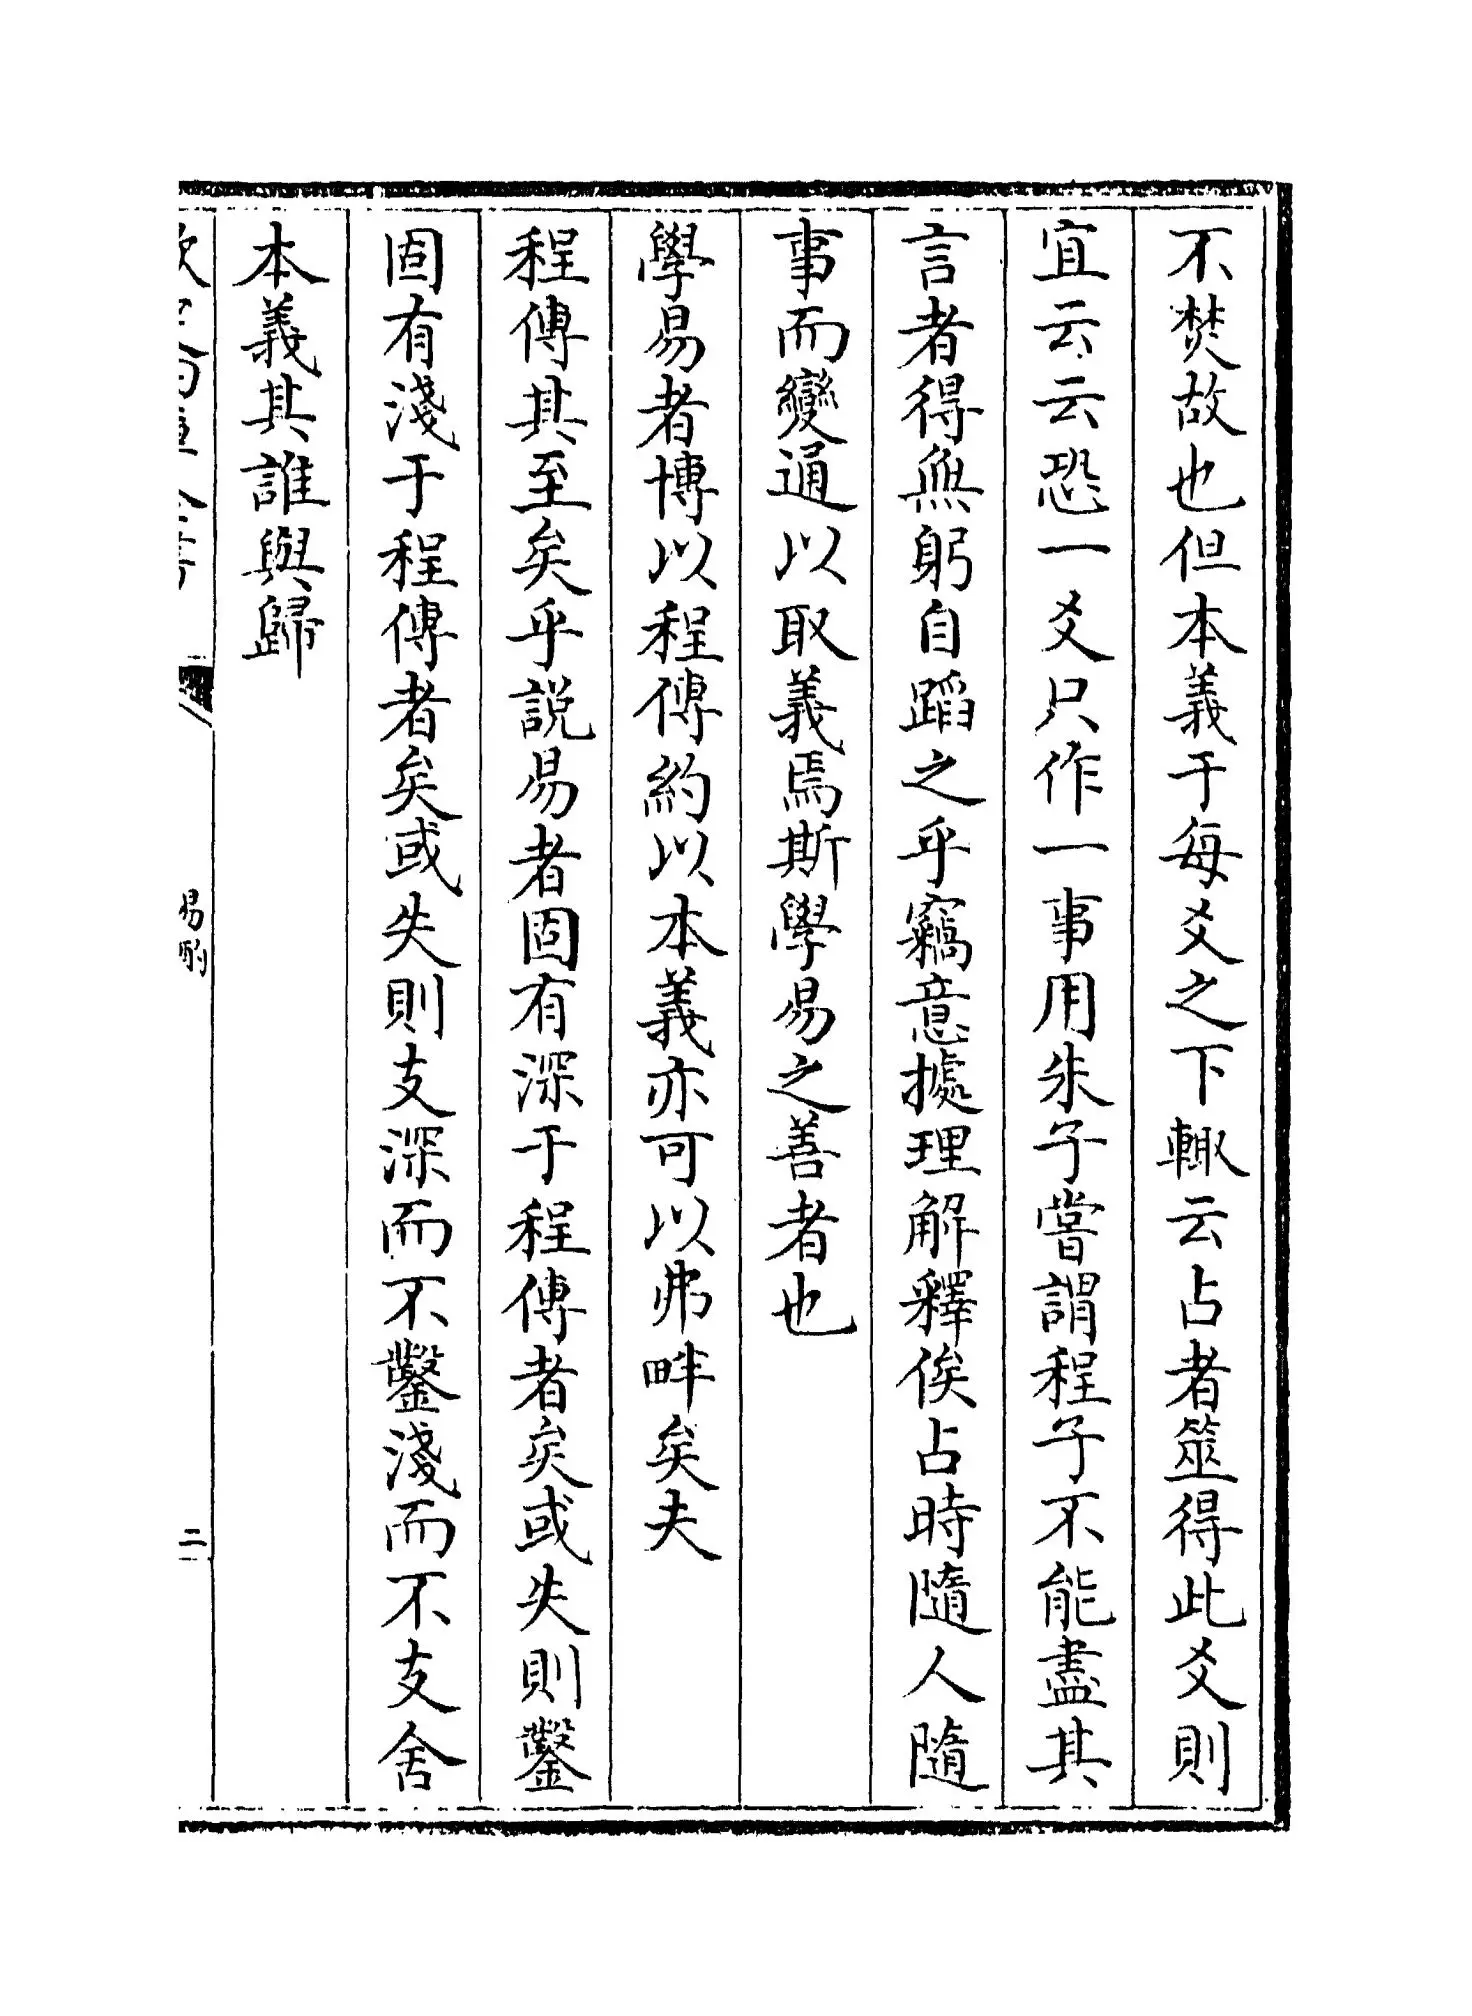 不焚故也但本義于每爻之下輙云占者筮得此爻則
宜云云恐一爻只作一事用朱子嘗謂程子不能盡其
言者得無躬自蹈之乎竊意據理解釋俟占時隨人隨
事而變通以取義焉斯學易之善者也
學易者博以程傳約以本義亦可以弗畔矣夫
程傳其至矣乎説易者固有深于程傳者矣或失則鑿
固有淺于程傳者矣或失則支深而不鑿淺而不支舍
本義其誰與歸
易酌
二